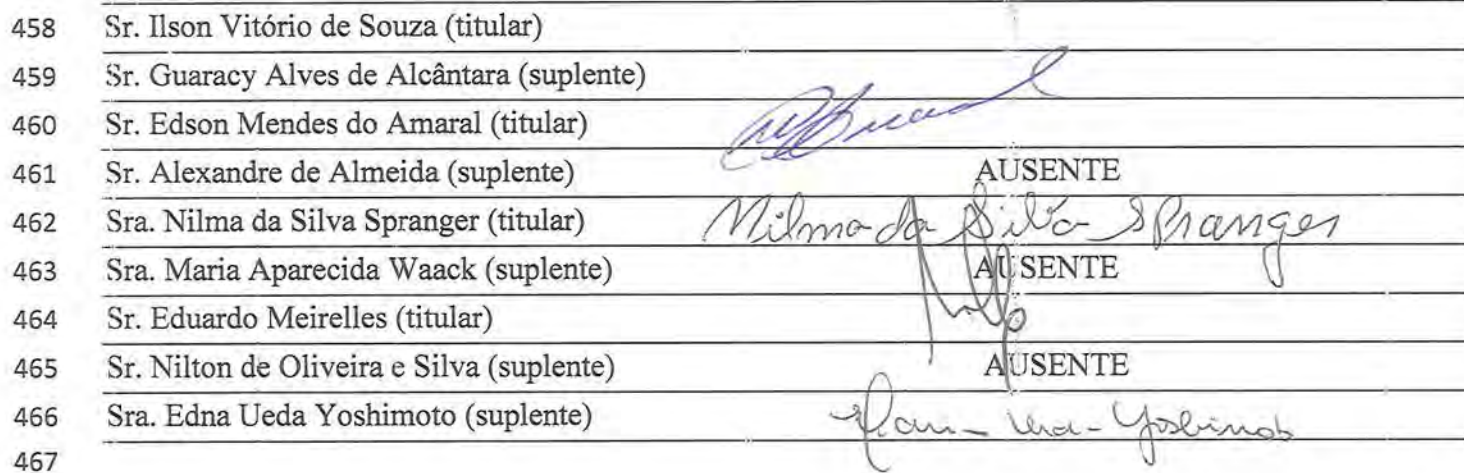 458 Sr. Ilson Vitório de Souza (titular)
459 Sr. Guaracy Alves de Alcântara (suplente)
460 Sr. Edson Mendes do Amaral (titular)
461 Sr. Alexandre de Almeida (suplente) AUSENTE
462 Sra. Nilma da Silva Spranger (titular) Nilma da Silva Spranger
463 Sra. Maria Aparecida Waack (suplente) AUSENTE
464 Sr. Eduardo Meirelles (titular)
465 Sr. Nilton de Oliveira e Silva (suplente) AUSENTE
466 Sra. Edna Ueda Yoshimoto (suplente)
467